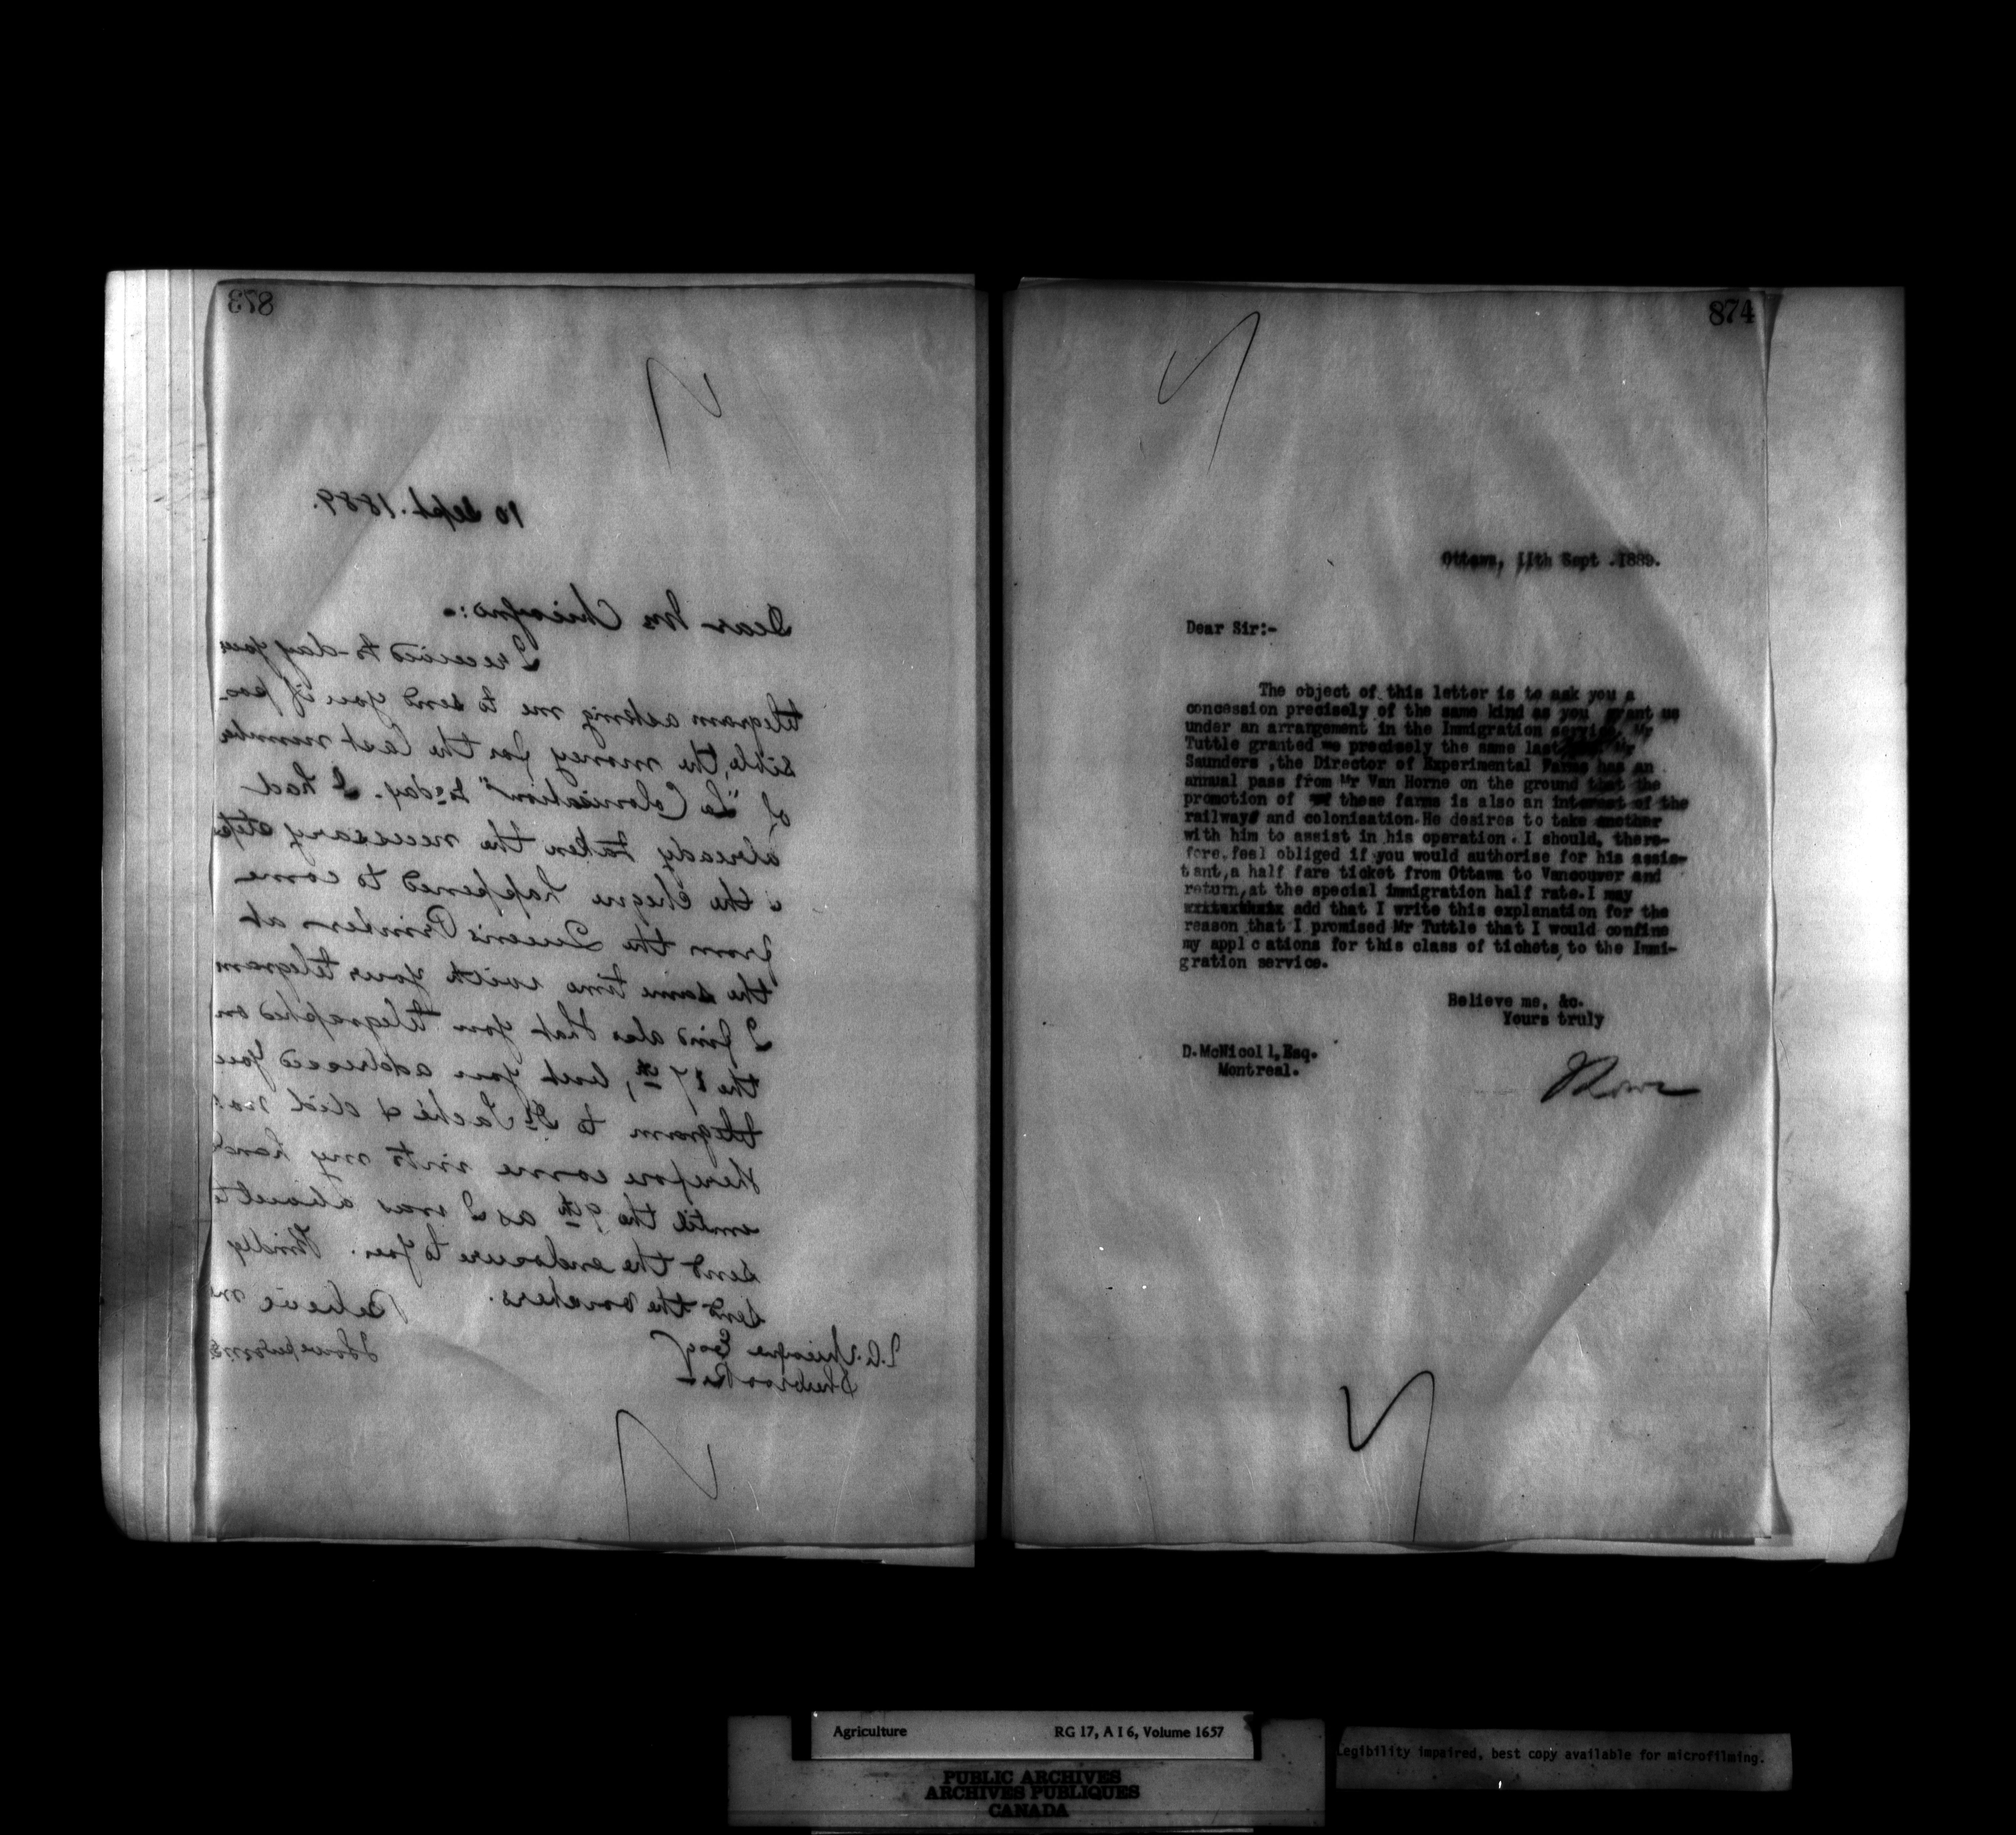 873
10 Sept. 1889.
Dear Mr Chicoyne:-
I received to-day your
telegram asking me to send you if pos-
sible, the money for the last numbe
of "La Colonisation" to day. I had
already taken the necessary steps
& the cheque happened to come
from the Queen's Printer at
the same time with your telegram
I find also that you telegraphed on
the 7th, but you addressed you
telegram to Dr Taché & did no
therefore come into my hand
until the 9th as I was about t
send the enclosure to you. Kindly
send the vouchers.
Believe m
J. A. Chicoyne Esq
Sherbrooke
874
Ottawa, 11th Sept .1889.
Dear Sir:-
The object of this letter is to ask you a
concession precisely of the same kind as you grant us
under an arrangement in the Immigration service. Mr
Tuttle granted me precisely the same last Mr
Saunders ,the Director of Experimental Farms has an
annual pass from Mr Van Horne on the ground that the
promotion of these farms is also an interest of the
railways and colonisation.He desires to take another
with him to assist in his operation. I should, there-
fore,feel obliged if you would authorise for his assis-
tant,a half fare ticket from Ottawa to Vancouver and
return,at the special immigration half rate.I may
add that I write this explanation for the
reason that I promised Mr Tuttle that I would confine
my applcations for this class of tickets, to the Immi-
gration service.
Believe me, &c.
Yours truly
D.McNicoll,Esq.
Montreal.
Agriculture RG 17, A I 6, Volume 1657
PUBLIC ARCHIVES
ARCHIVES PUBLIQUES
CANADA
Legibility impaired, best copy available for microfilming.